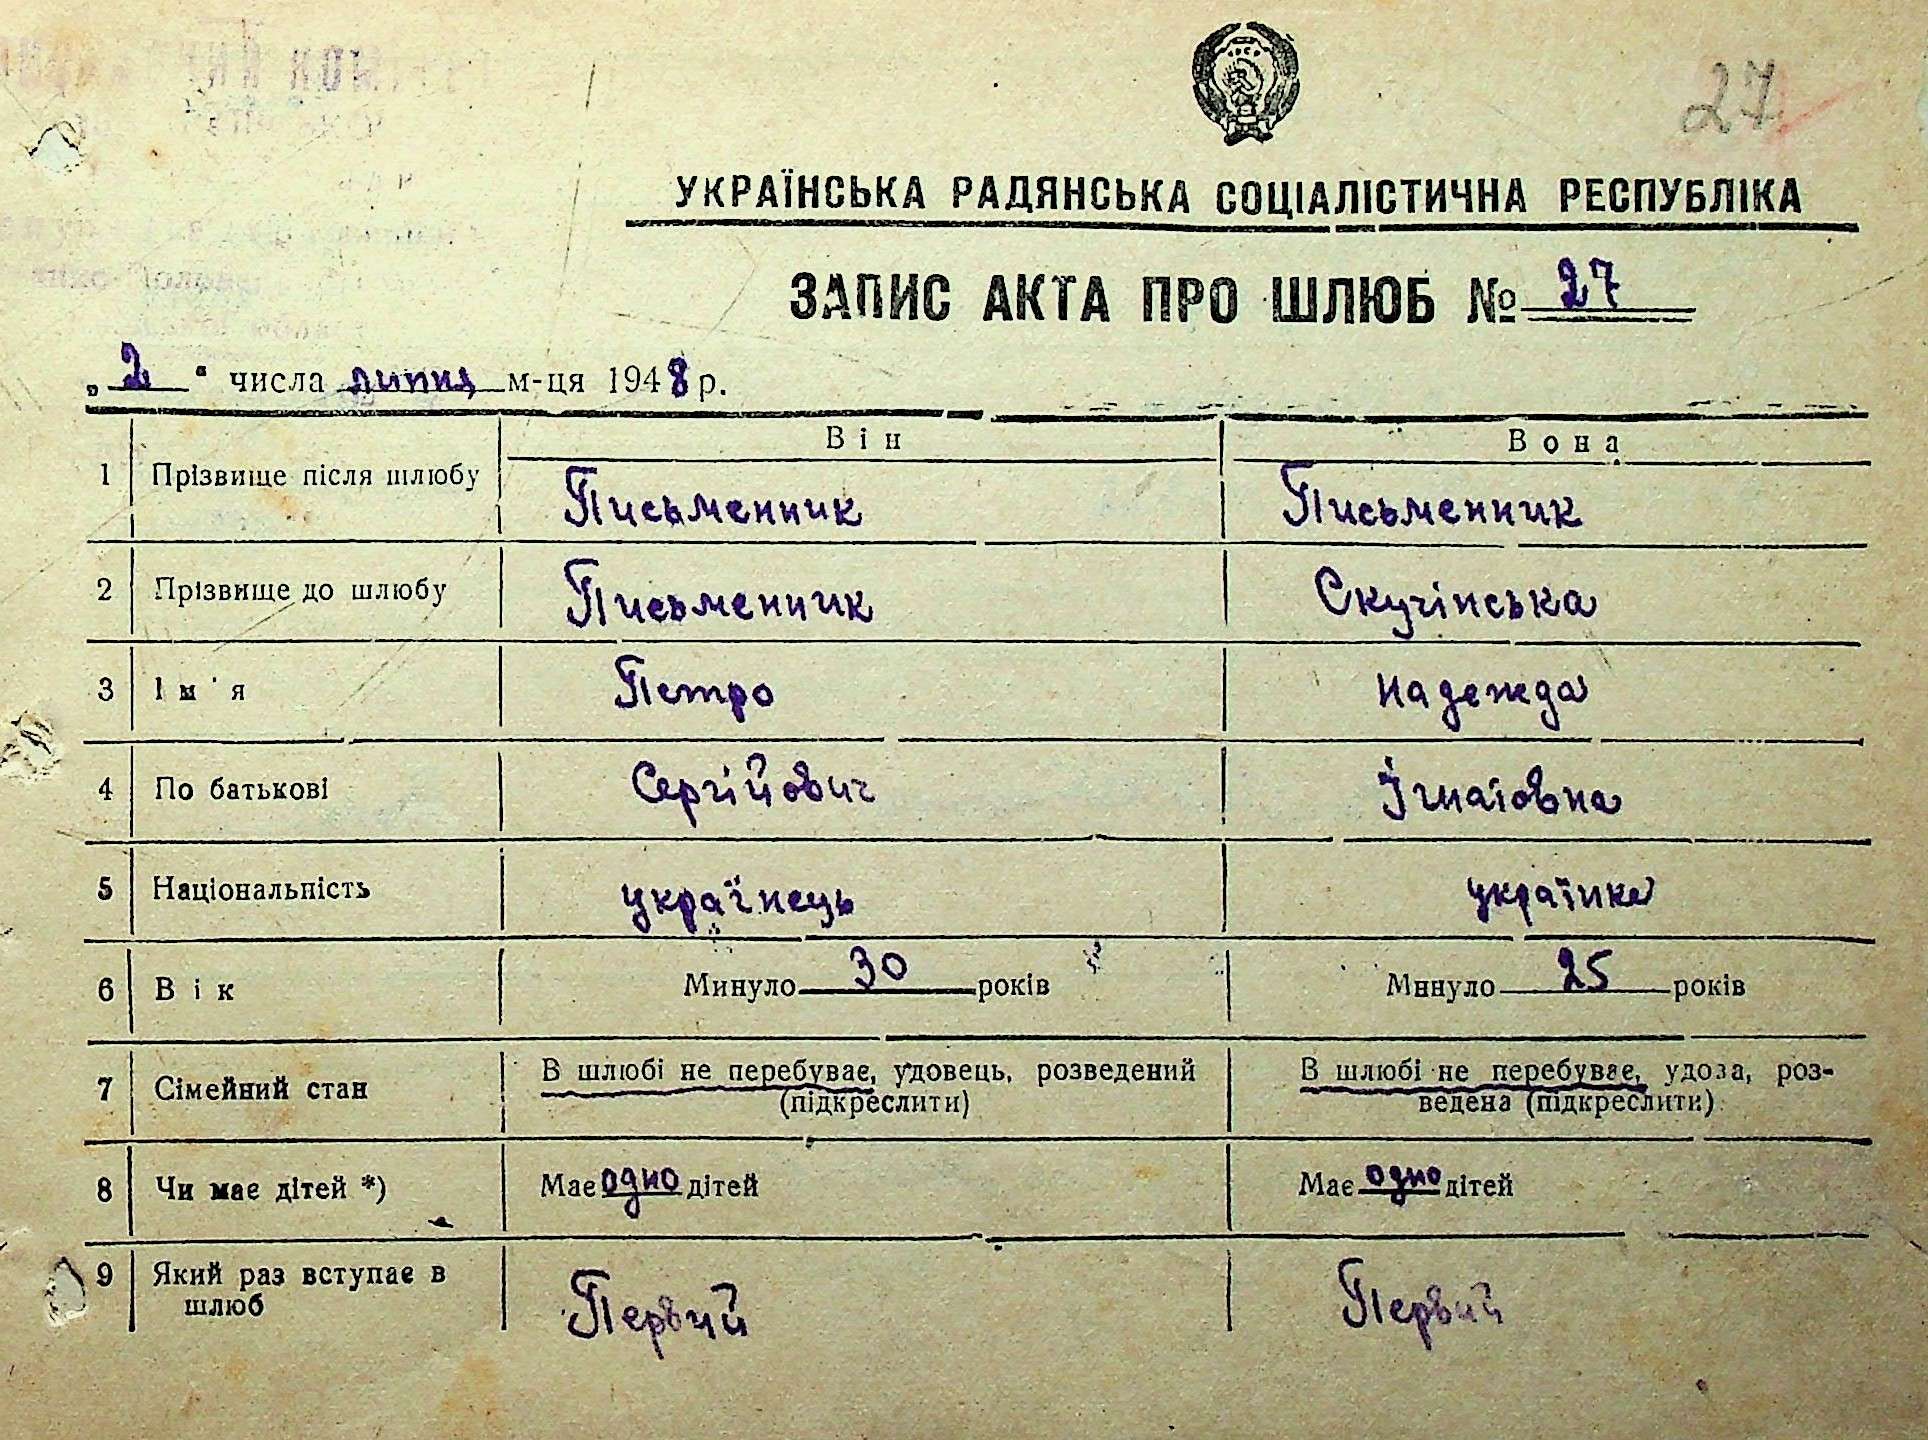 27
УКРАЇНСЬКА РАДЯНСЬКА СОЦІАЛІСТИЧНА РЕСПУБЛІКА
ЗАПИС АКТА ПРО ШЛЮБ № 27
„2“ числа липня м-ця 1948 р.
Він Вона
1 Прізвище після шлюбу Письменник Письменник
2 Прізвище до шлюбу Письменник Скучінська
3 Ім'я Петро Надежда
4 По батькові Сергійович Ігнатовна
5 Національність українець українка
6 Вік Минуло 30 років Минуло 25 років
7 Сімейний стан В шлюбі не перебуває, удовець, розведений В шлюбі не перебуває, удова, роз-
(підкреслити) ведена (підкреслити)
8 Чи має дітей *) Має одно дітей Має одно дітей
9 Який раз вступає в
шлюб Первий Первий